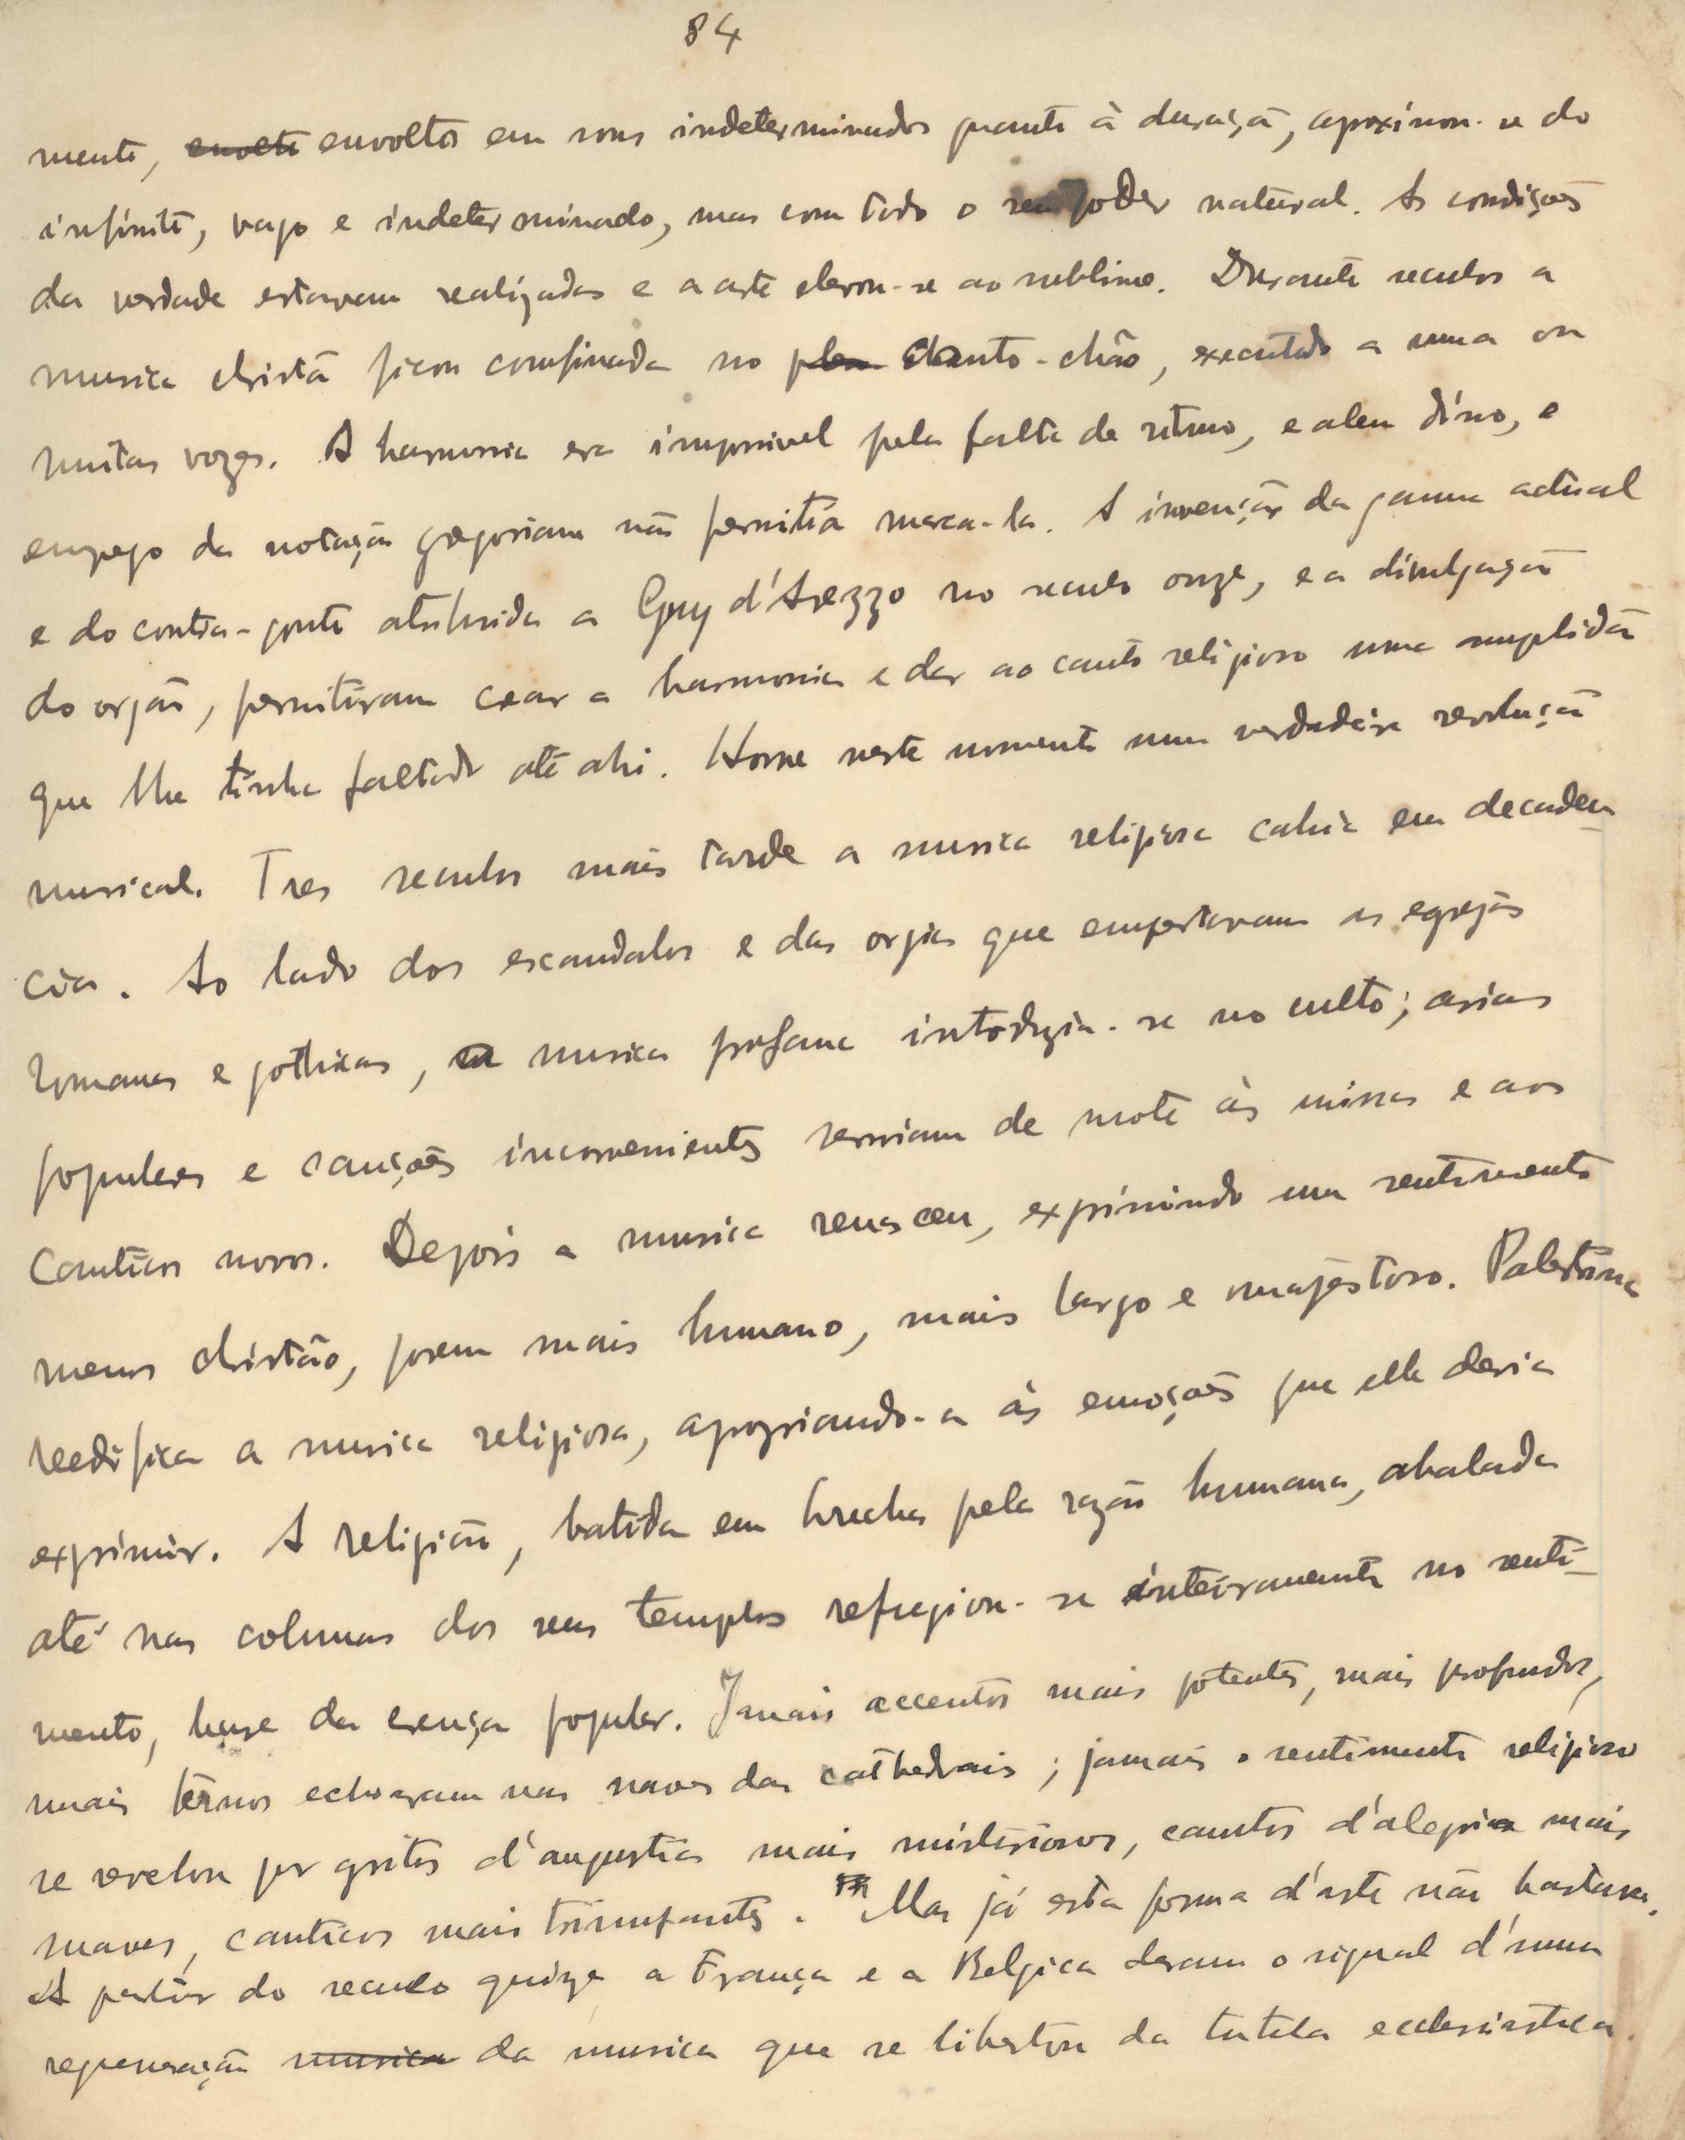 84
mente, envolto envoltos em sons indeterminados quanto à duração, aproximou-se do
infinito, vago e indeterminado, mas com todo o seu poder natural. As condições
da verdade estavam realizadas e a arte elevou-se ao sublime. Durante seculos a
musica christã ficou confinada no plan chanto-chão, executado a uma ou
muitas vozes. A harmonia era impossivel pela falta de ritmo, e alem disso, o
emprego da notação gregoriana não permitia marca-la. A invenção da gamma actual
e do contra-ponto atribuida a Guy d'Arezzo no seculo onze, e a divulgação
do orgão, permitiram crear a harmonia e dar ao canto religioso uma amplidão
que lhe tinha faltado até ahi. Houve neste momento uma verdadeira revolução
musical. Tres seculos mais tarde a musica religiosa cahia em decaden-
cia. Ao lado dos escandalos e das orgias que empestavam as egrejas
romanas e gothicas, a musica profana introduzia-se no culto; arias
populares e canções inconvenientes serviam de mote às missas e aos
canticos novos. Depois a musica renasceu, exprimindo um sentimento
menos christão, porem mais humano, mais largo e majestoso. Palestrina
reedifica a musica religiosa, apropriando-a às emoções que ella devia
exprimir. A religião, batida em brecha pela razão humana, abalada
até nas colunas dos seus templos refugiou-se inteiramente no senti-
mento, base da crença popular. Jamais accentos mais potentes, mais profundos,
mais ternos echoaram nas naves das cathedrais; jamais o sentimento religioso
se revelou por gritos d'angustia mais misteriosos, cantos d'alegria mais
suaves, canticos mais triunfantes. Mas já esta forma d'arte não bastava.
A partir do seculo quinze a França e a Belgica deram o signal d'uma
regeneração musica da musica que se libertou da tutela ecclesiastica.